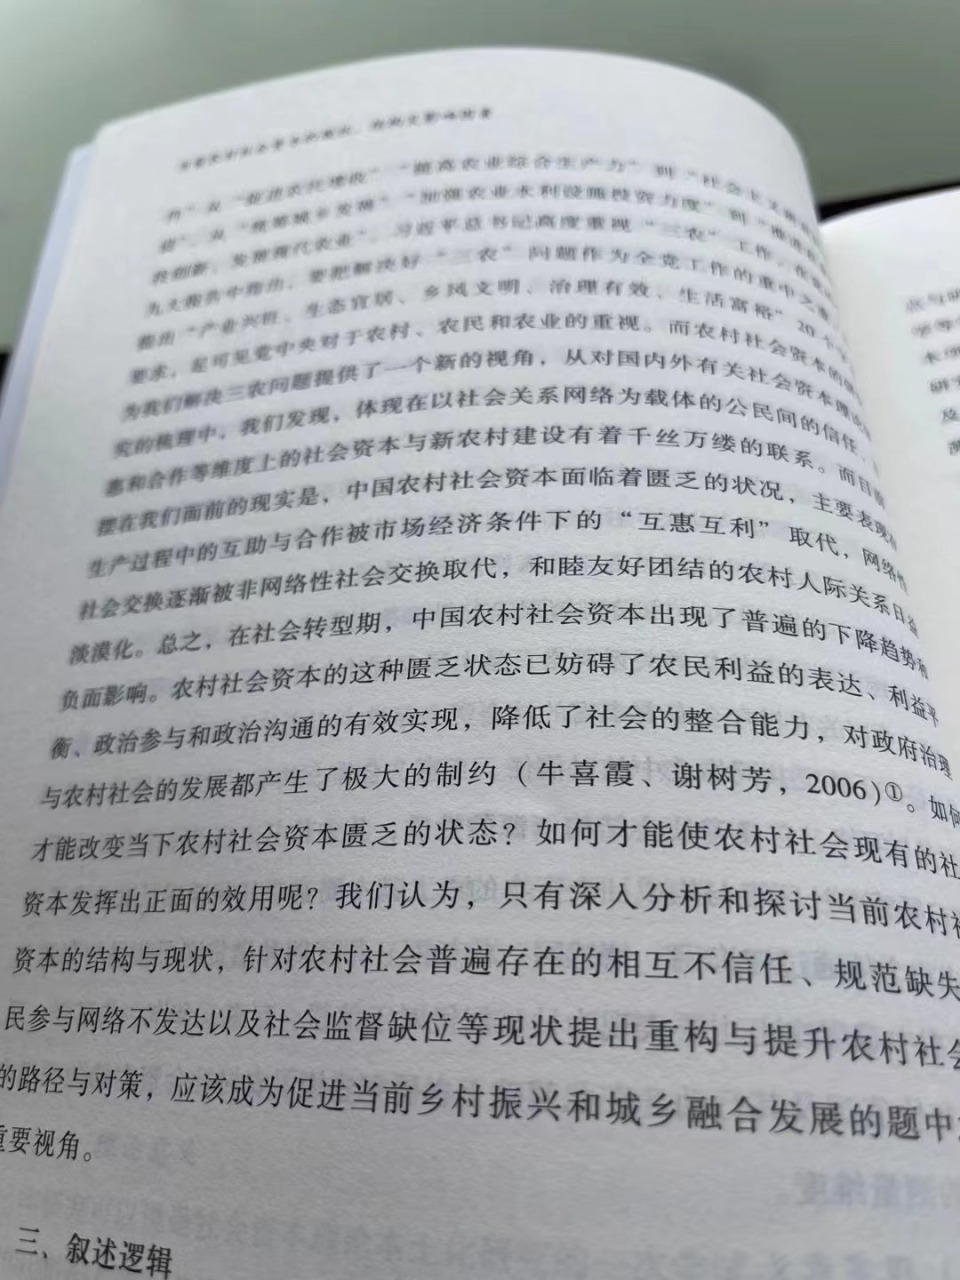 有”从“促进农民增收”“提高农业综合生产力”到“社会主义新
”，从“统筹城乡发展”“加强农业水利设施投资力度”到“推进
创新，发展现代农业”，习近平总书记高度重视“三农”工作，在
九大报告中指出，要把解决好“三农”问题作为全党工作的重中之重
提出“产业兴旺、生态宜居、乡风文明、治理有效、生活富裕”20个字
要求，足可见党中央对于农村、农民和农业的重视。而农村社会资本的
为我们解决三农问题提供了一个新的视角，从对国内外有关社会资本理论
究的梳理中，我们发现，体现在以社会关系网络为载体的公民间的信任、
惠和合作等维度上的社会资本与新农村建设有着千丝万缕的联系。而目前
摆在我们面前的现实是，中国农村社会资本面临着匮乏的状况，主要表现在
生产过程中的互助与合作被市场经济条件下的“互惠互利”取代，网络性
社会交换逐渐被非网络性社会交换取代，和睦友好团结的农村人际关系日益
淡漠化。总之，在社会转型期，中国农村社会资本出现了普遍的下降趋势和
负面影响。农村社会资本的这种匮乏状态已妨碍了农民利益的表达、利益平
衡、政治参与和政治沟通的有效实现，降低了社会的整合能力，对政府治理
与农村社会的发展都产生了极大的制约（牛喜霞、谢树芳，2006）①。如何
才能改变当下农村社会资本匮乏的状态？如何才能使农村社会现有的社
资本发挥出正面的效用呢？我们认为，只有深入分析和探讨当前农村社
资本的结构与现状，针对农村社会普遍存在的相互不信任、规范缺失
民参与网络不发达以及社会监督缺位等现状提出重构与提升农村社会
的路径与对策，应该成为促进当前乡村振兴和城乡融合发展的题中
重要视角。
三、叙述逻辑